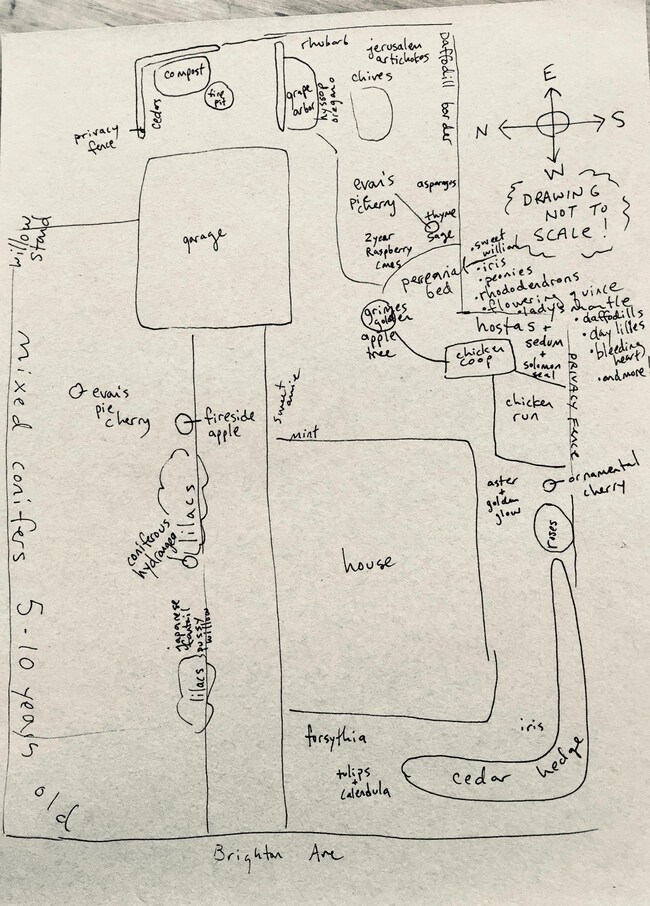 rhubarb
jerusalem
artichokes
chives
Daffodill border
compost
fire
pit
cedar
grape
arbor
hyssop
oregano
privacy
fence
E
N
S
W
DRAWING
NOT TO
SCALE!
evan's
pie cherry
asparagus
thyme
sage
2 year
Raspberry
canes
perennial
bed
• sweet
william
• iris
• peonies
• rhododendrons
• flowering quince
• lady's mantle
• daffodills
• day lilies
• bleeding
heart
• and more!
willow
stand
garage
grimes
golden
apple
tree
hostas +
sedum
+
solomon
seal
chicken
coop
chicken
run
PRIVACY FENCE
mixed conifers 5-10 years
old
evan's
pie
cherry
fireside
apple
sweet
mint
lilacs
coniferous
hydrangea
japanese
fantail
pussy
willow
lilacs
house
aster
+
golden
glow
ornamental
cherry
roses
forsythia
tulips
+
calendula
iris
cedar hedge
Brighton Ave